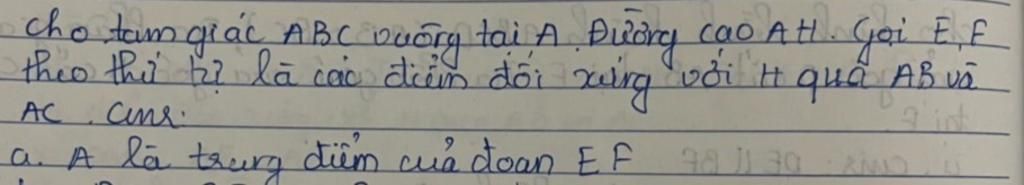 Cho tam giác ABC vuông tại A. Đường cao AH. Gọi E, F
theo thứ tự là các điểm đối xứng với H qua AB và
AC. Cmr:
a. A là trung điểm của đoạn EF